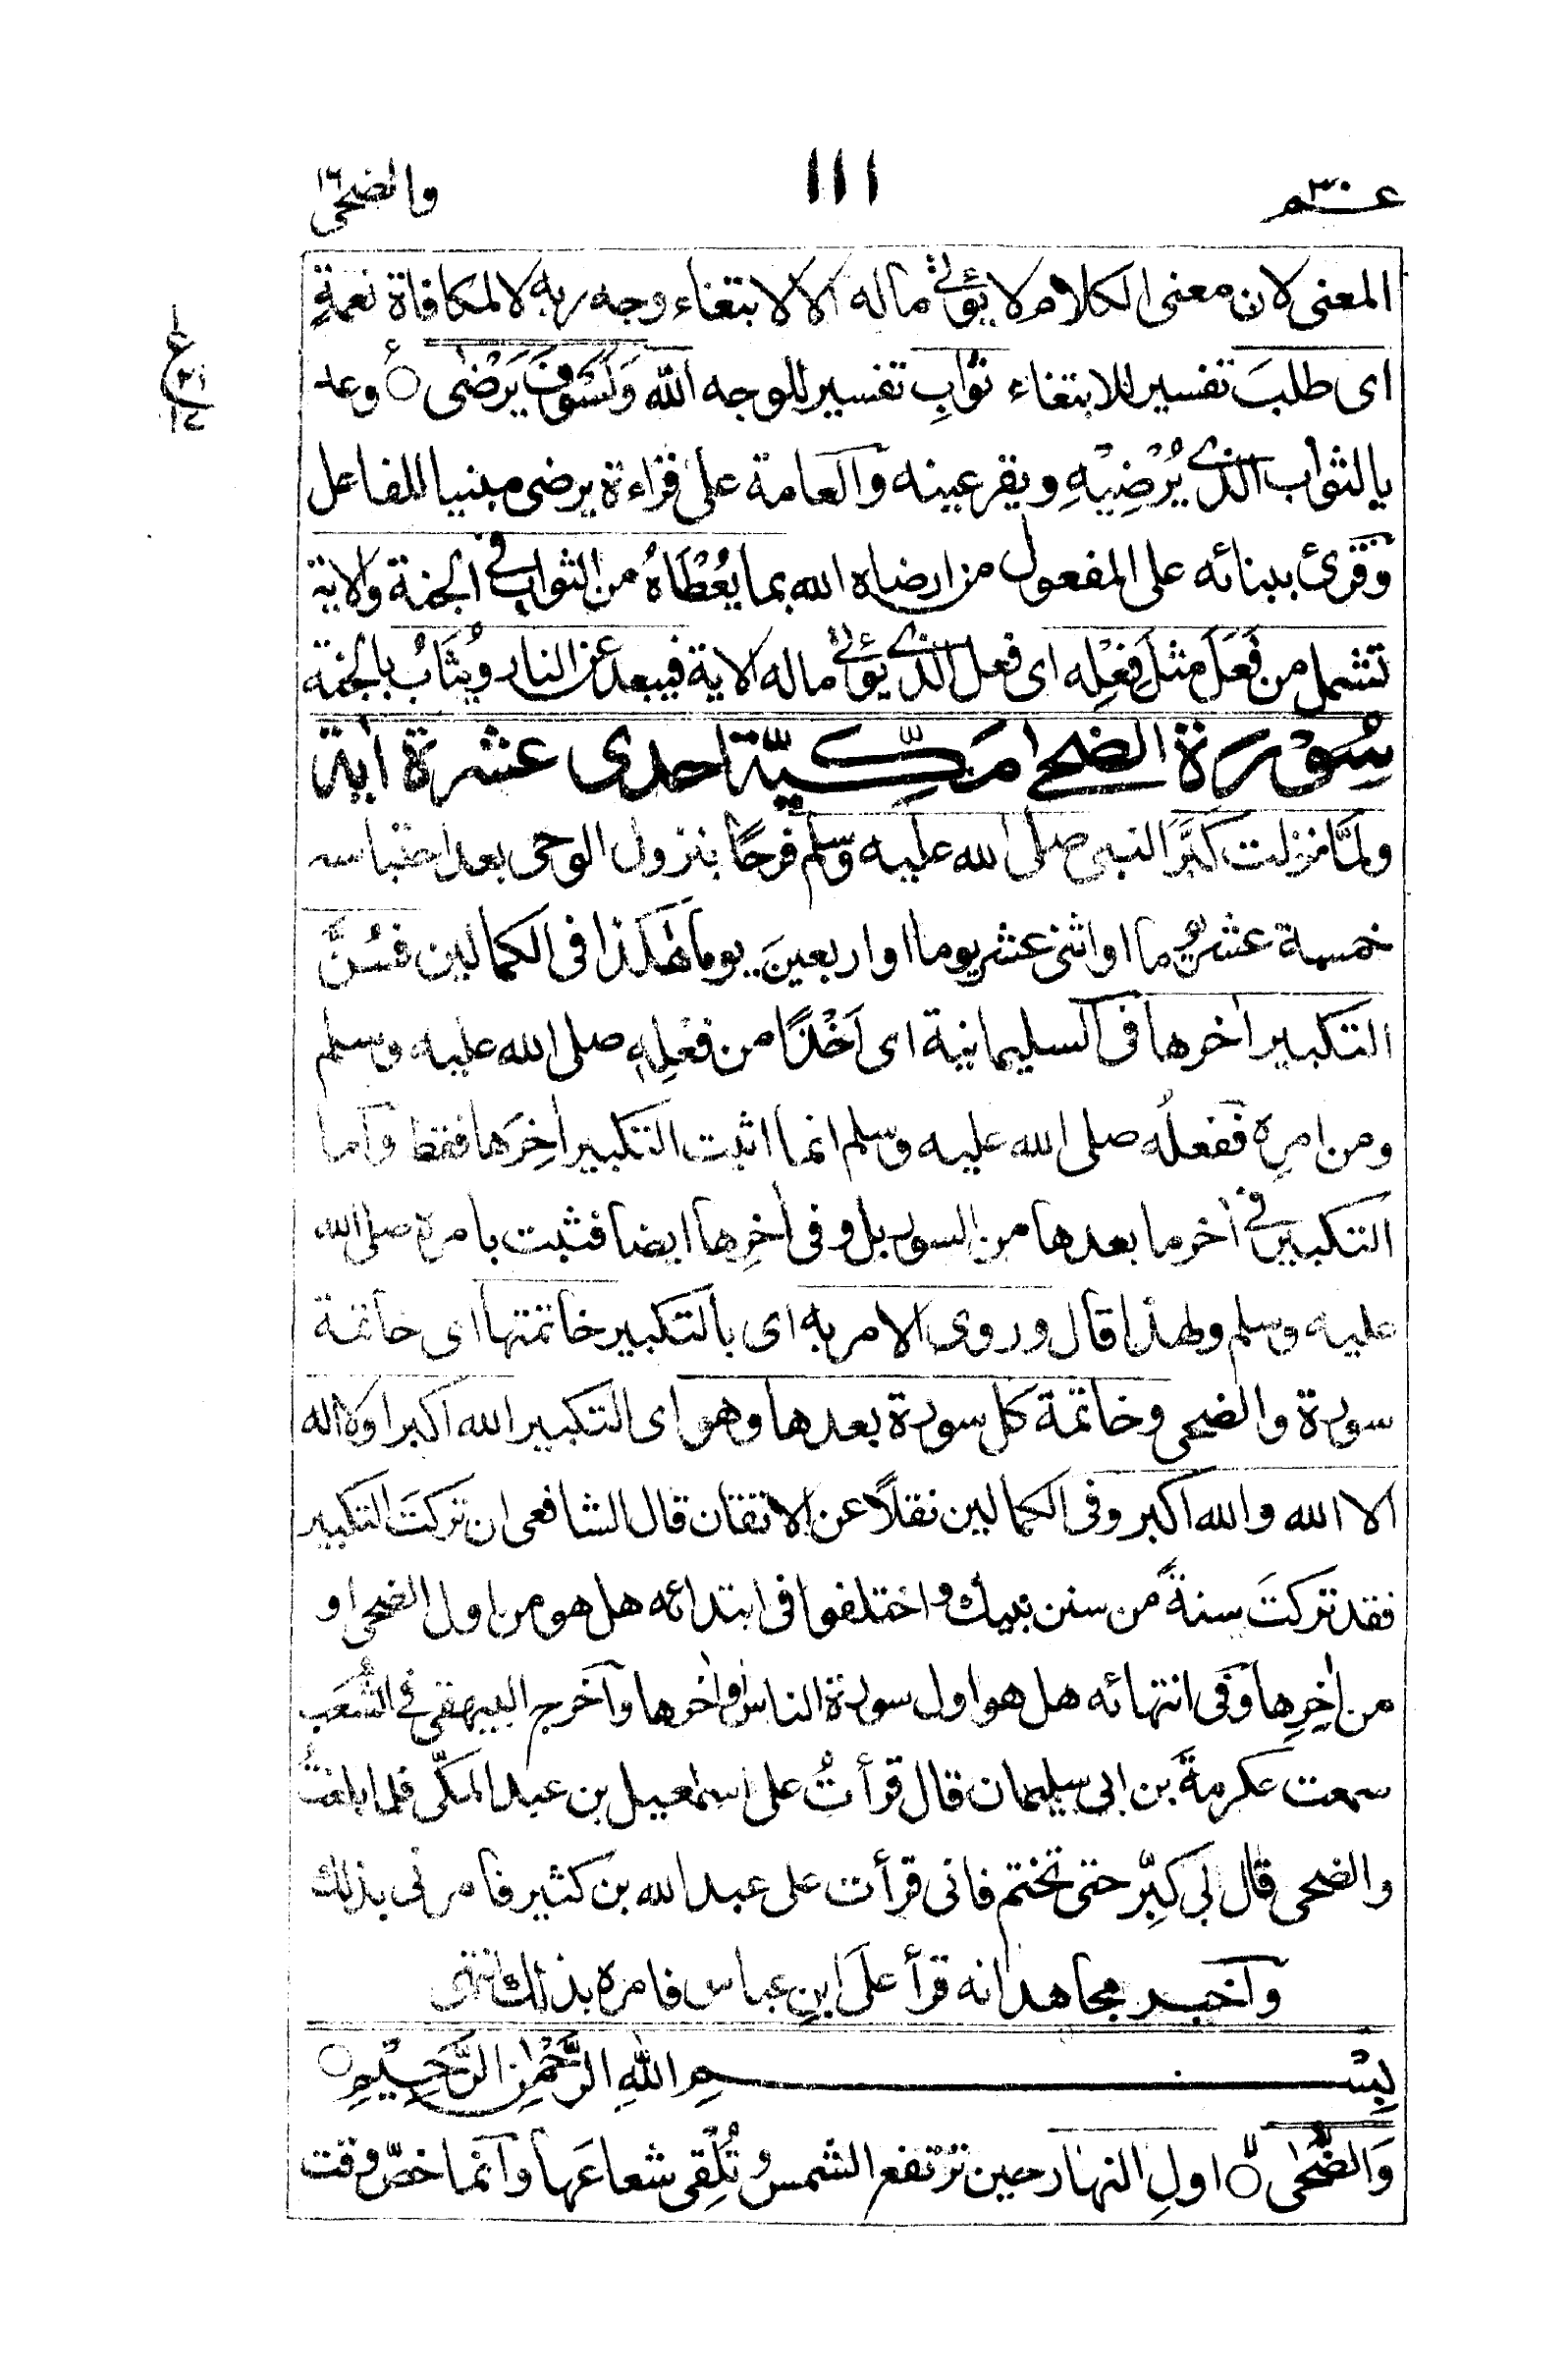 عــم ٣٠
١١١
والضحى
المعنى لان معنى الكلام لا يؤتى ماله الا لابتغاء وجه ربه لا لمكافاة نعمةٍ
اى طلبَ تفسير للابتغاء ثوابِ تفسير للوجه الله وَلَسَوْفَ يَرْضٰى ۝ وعد
بالثواب الذى يُرْضِيْهِ ويقر عينه والعامة على قراءة يرضى مبنيا للفاعل
وقرئ ببنائه على المفعول من ارضاه الله بما يُعْطَاهُ من الثواب فى الجنة والاية
تشمل من فَعَلَ مثلَ فِعْلِه اى فعل الذى يؤتى ماله الاية فيبعد عن النار ويُثَابُ بالجنة
سُوْرَة الضحى مَكِّيَّة احدى عشرة اٰية
ولمَّا نزلت كَبَّرَ النبى صلى الله عليه وسلم فرحًا بنزول الوحى بعد احتباسه
خمسة عشر يوما او اثنى عشر يوما او اربعينَ يوما هٰكذا فى الكمالين فسُنَّ
التكبير اٰخرها فى السليمانية اى اَخْذًا من فِعْلِهِ صلى الله عليه وسلم
ومن امرِه ففعلُه صلى الله عليه وسلم انما اثبت التكبير اٰخِرَها فقط واما
التكبير فى اٰخر ما بعدها من السور بل وفى اٰخِرِها ايضا فثبت بامره صلى الله
عليه وسلم ولهذا قال وروى الامر به اى بالتكبير خاتمتها اى خاتمة
سورة والضحى وخاتمة كل سورة بعدها وهو اى التكبير الله اكبر او لا اله
الا الله والله اكبر وفى الكمالين نقلًا عن الاتقان قال الشافعى ان تركتَ التكبير
فقد تركتَ سنةً من سنن نبيك واختلفوا فى ابتدائه هل هو من اول الضحى او
من اٰخِرِها وفى انتهائه هل هو اول سورة الناس او اٰخرها وآخرج البيهقى فى الشُعَب
سمعت عكرمةَ بن ابى سليمان قال قرأتُ على اسمٰعيل بن عبد المكّى فلما بلغتُ
والضحى قال لى كبِّر حتى تختم فانى قرأت على عبد الله بن كثير فامرنى بذلك
وآخبـر مجاهد انه قرأ على ابنِ عباس فامره بذلك انتهى
بِسْــــــمِ اللهِ الرَّحْمٰنِ الرَّحِيْمِ ۝
وَالضُّحٰى ۝ اولِ النهار حين ترتفع الشمس وتُلْقِى شعاعَها وآنما خصّ وقت